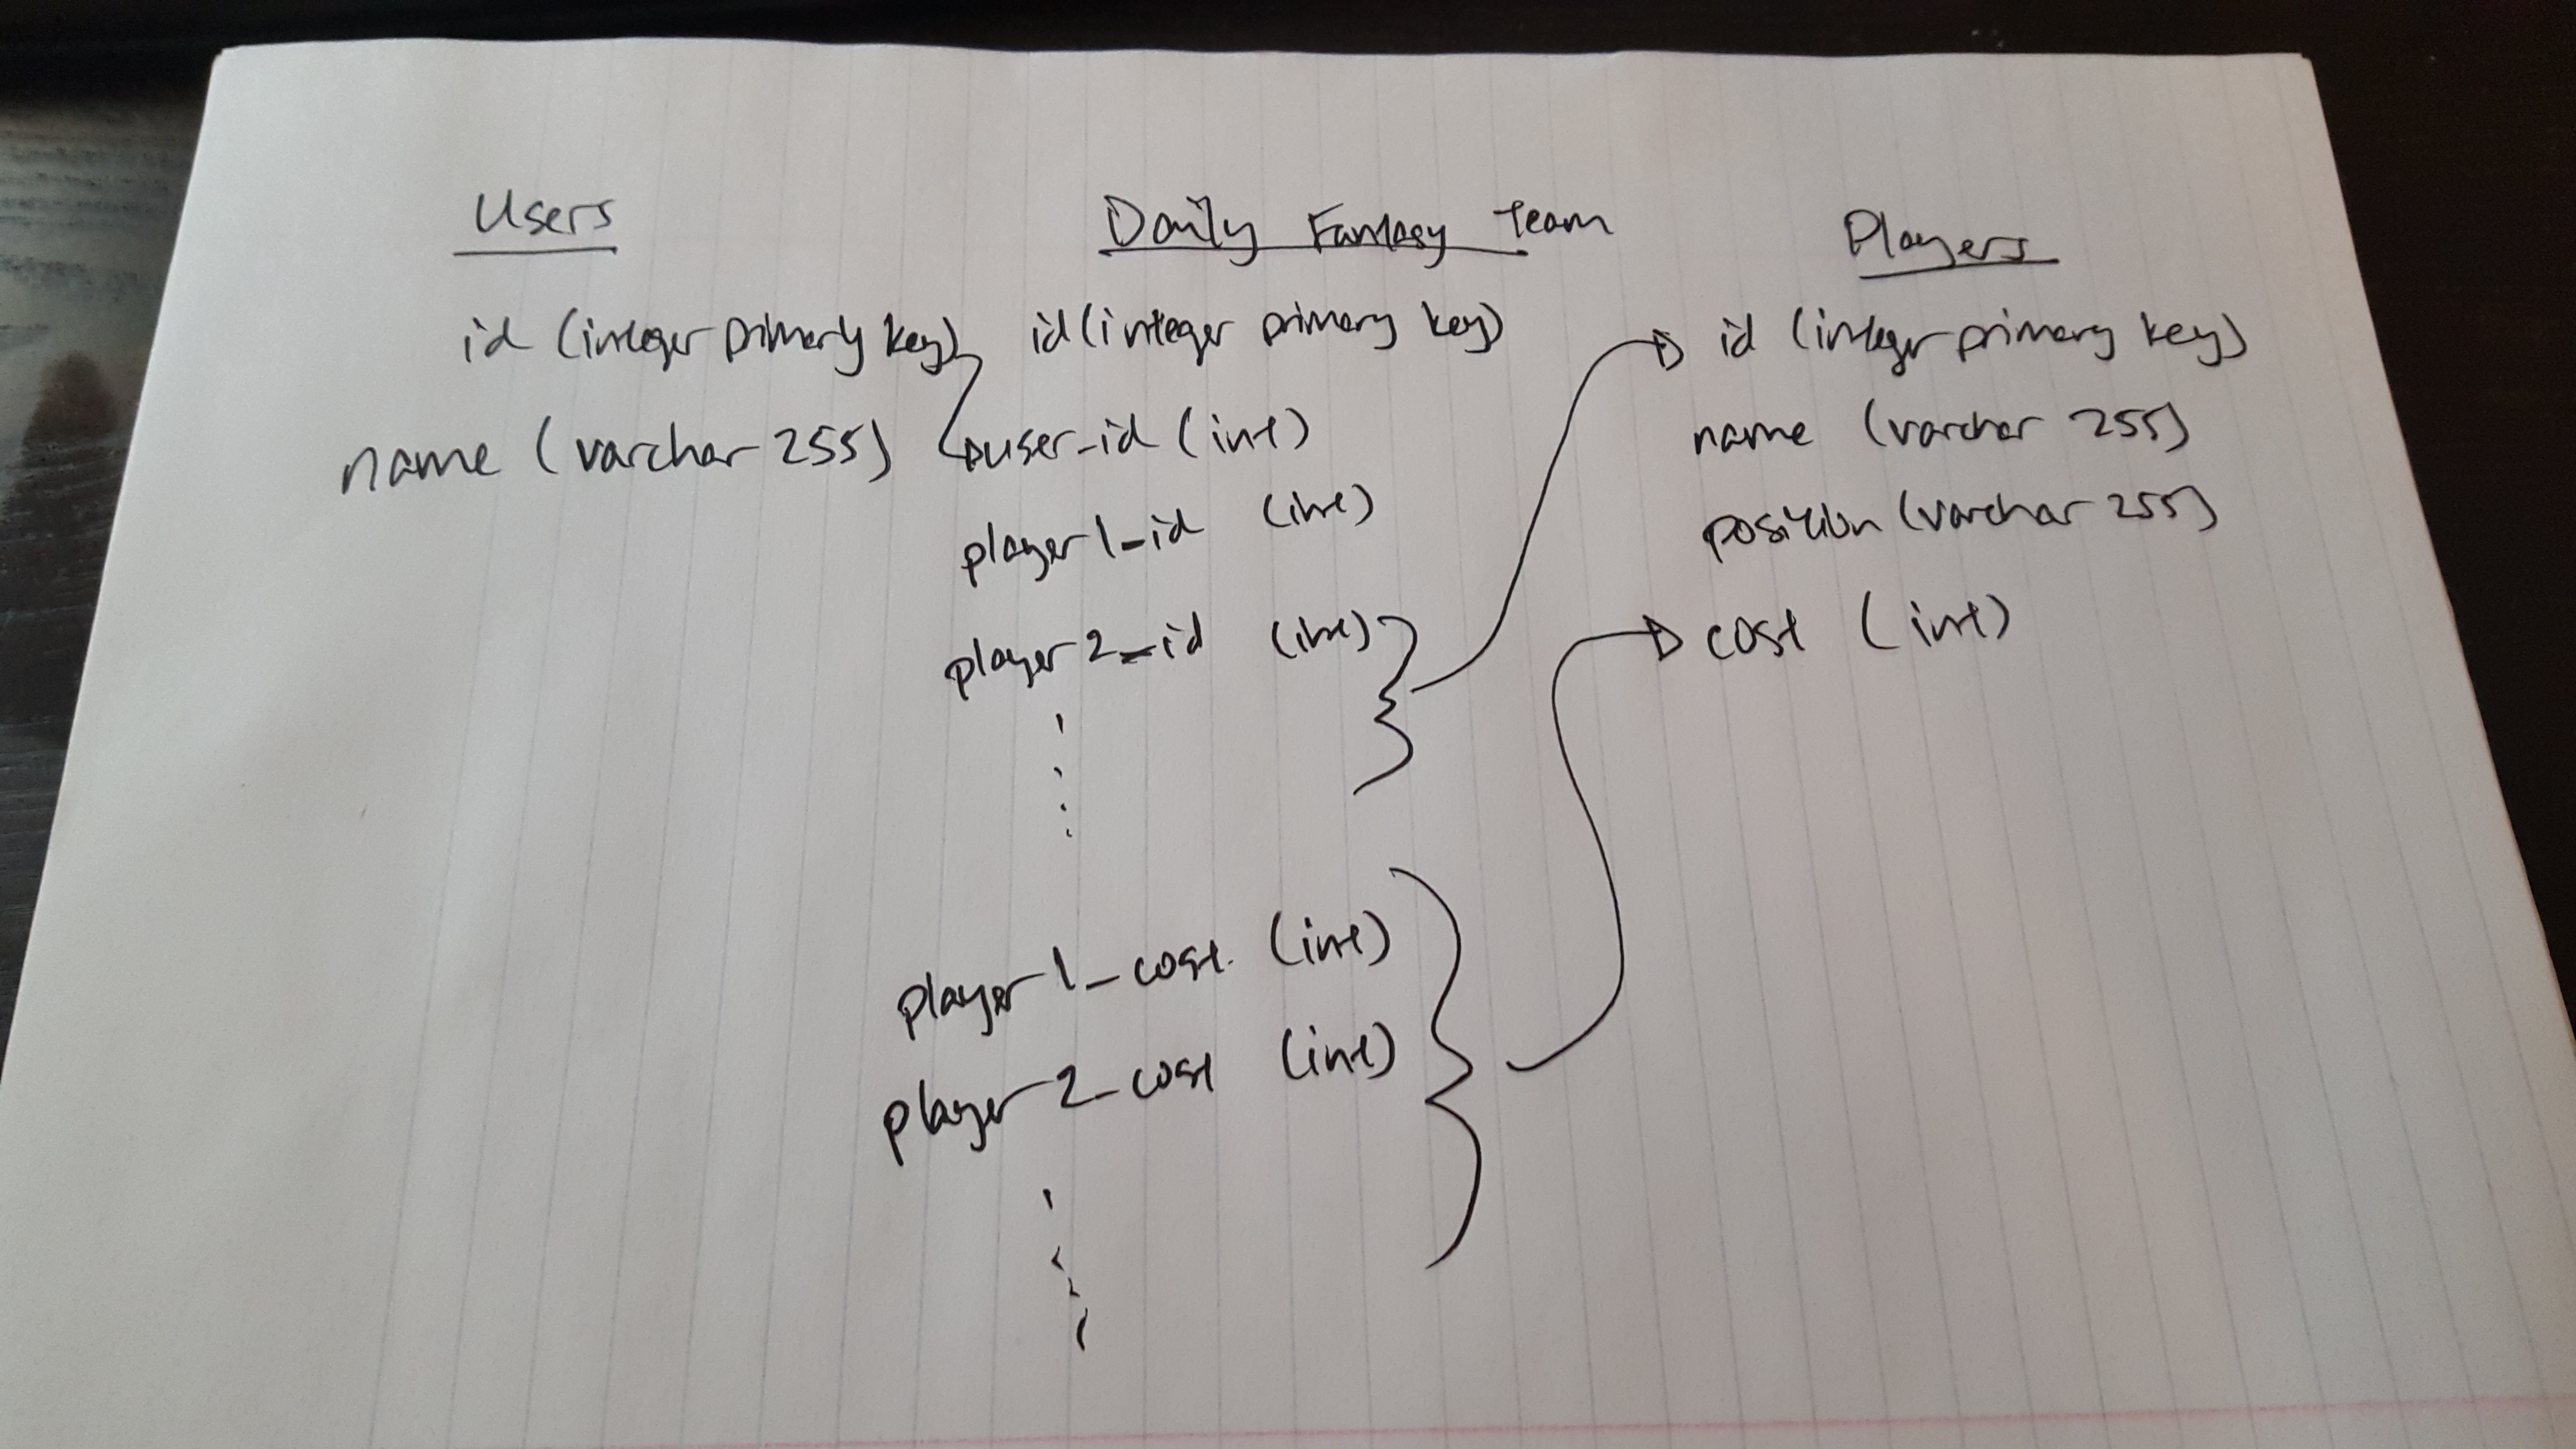 Users
id (integer primary key)
name (varchar 255)
Daily Fantasy Team
id (integer primary key)
user_id (int)
player1_id (int)
player2_id (int)
player1_cost. (int)
player2_cost (int)
Players
id (integer primary key)
name (varchar 255)
position (varchar 255)
cost (int)